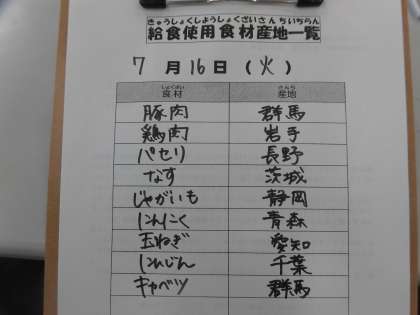 きゅうしょくしようしょくざいさんちいちらん
給食使用食材産地一覧
7月16日(火)
しょくざい さんち
食材 産地
豚肉 群馬
鶏肉 岩手
パセリ 長野
なす 茨城
じゃがいも 静岡
にんにく 青森
玉ねぎ 愛知
にんじん 千葉
キャベツ 群馬